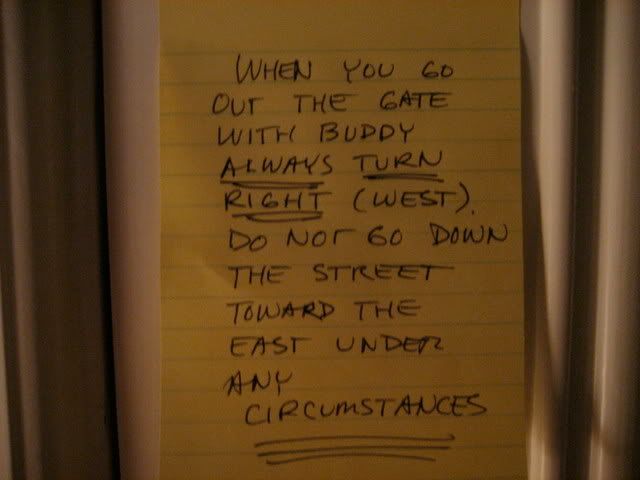 WHEN YOU GO
OUT THE GATE
WITH BUDDY
ALWAYS TURN
RIGHT (WEST).
DO NOT GO DOWN
THE STREET
TOWARD THE
EAST UNDER
ANY
CIRCUMSTANCES